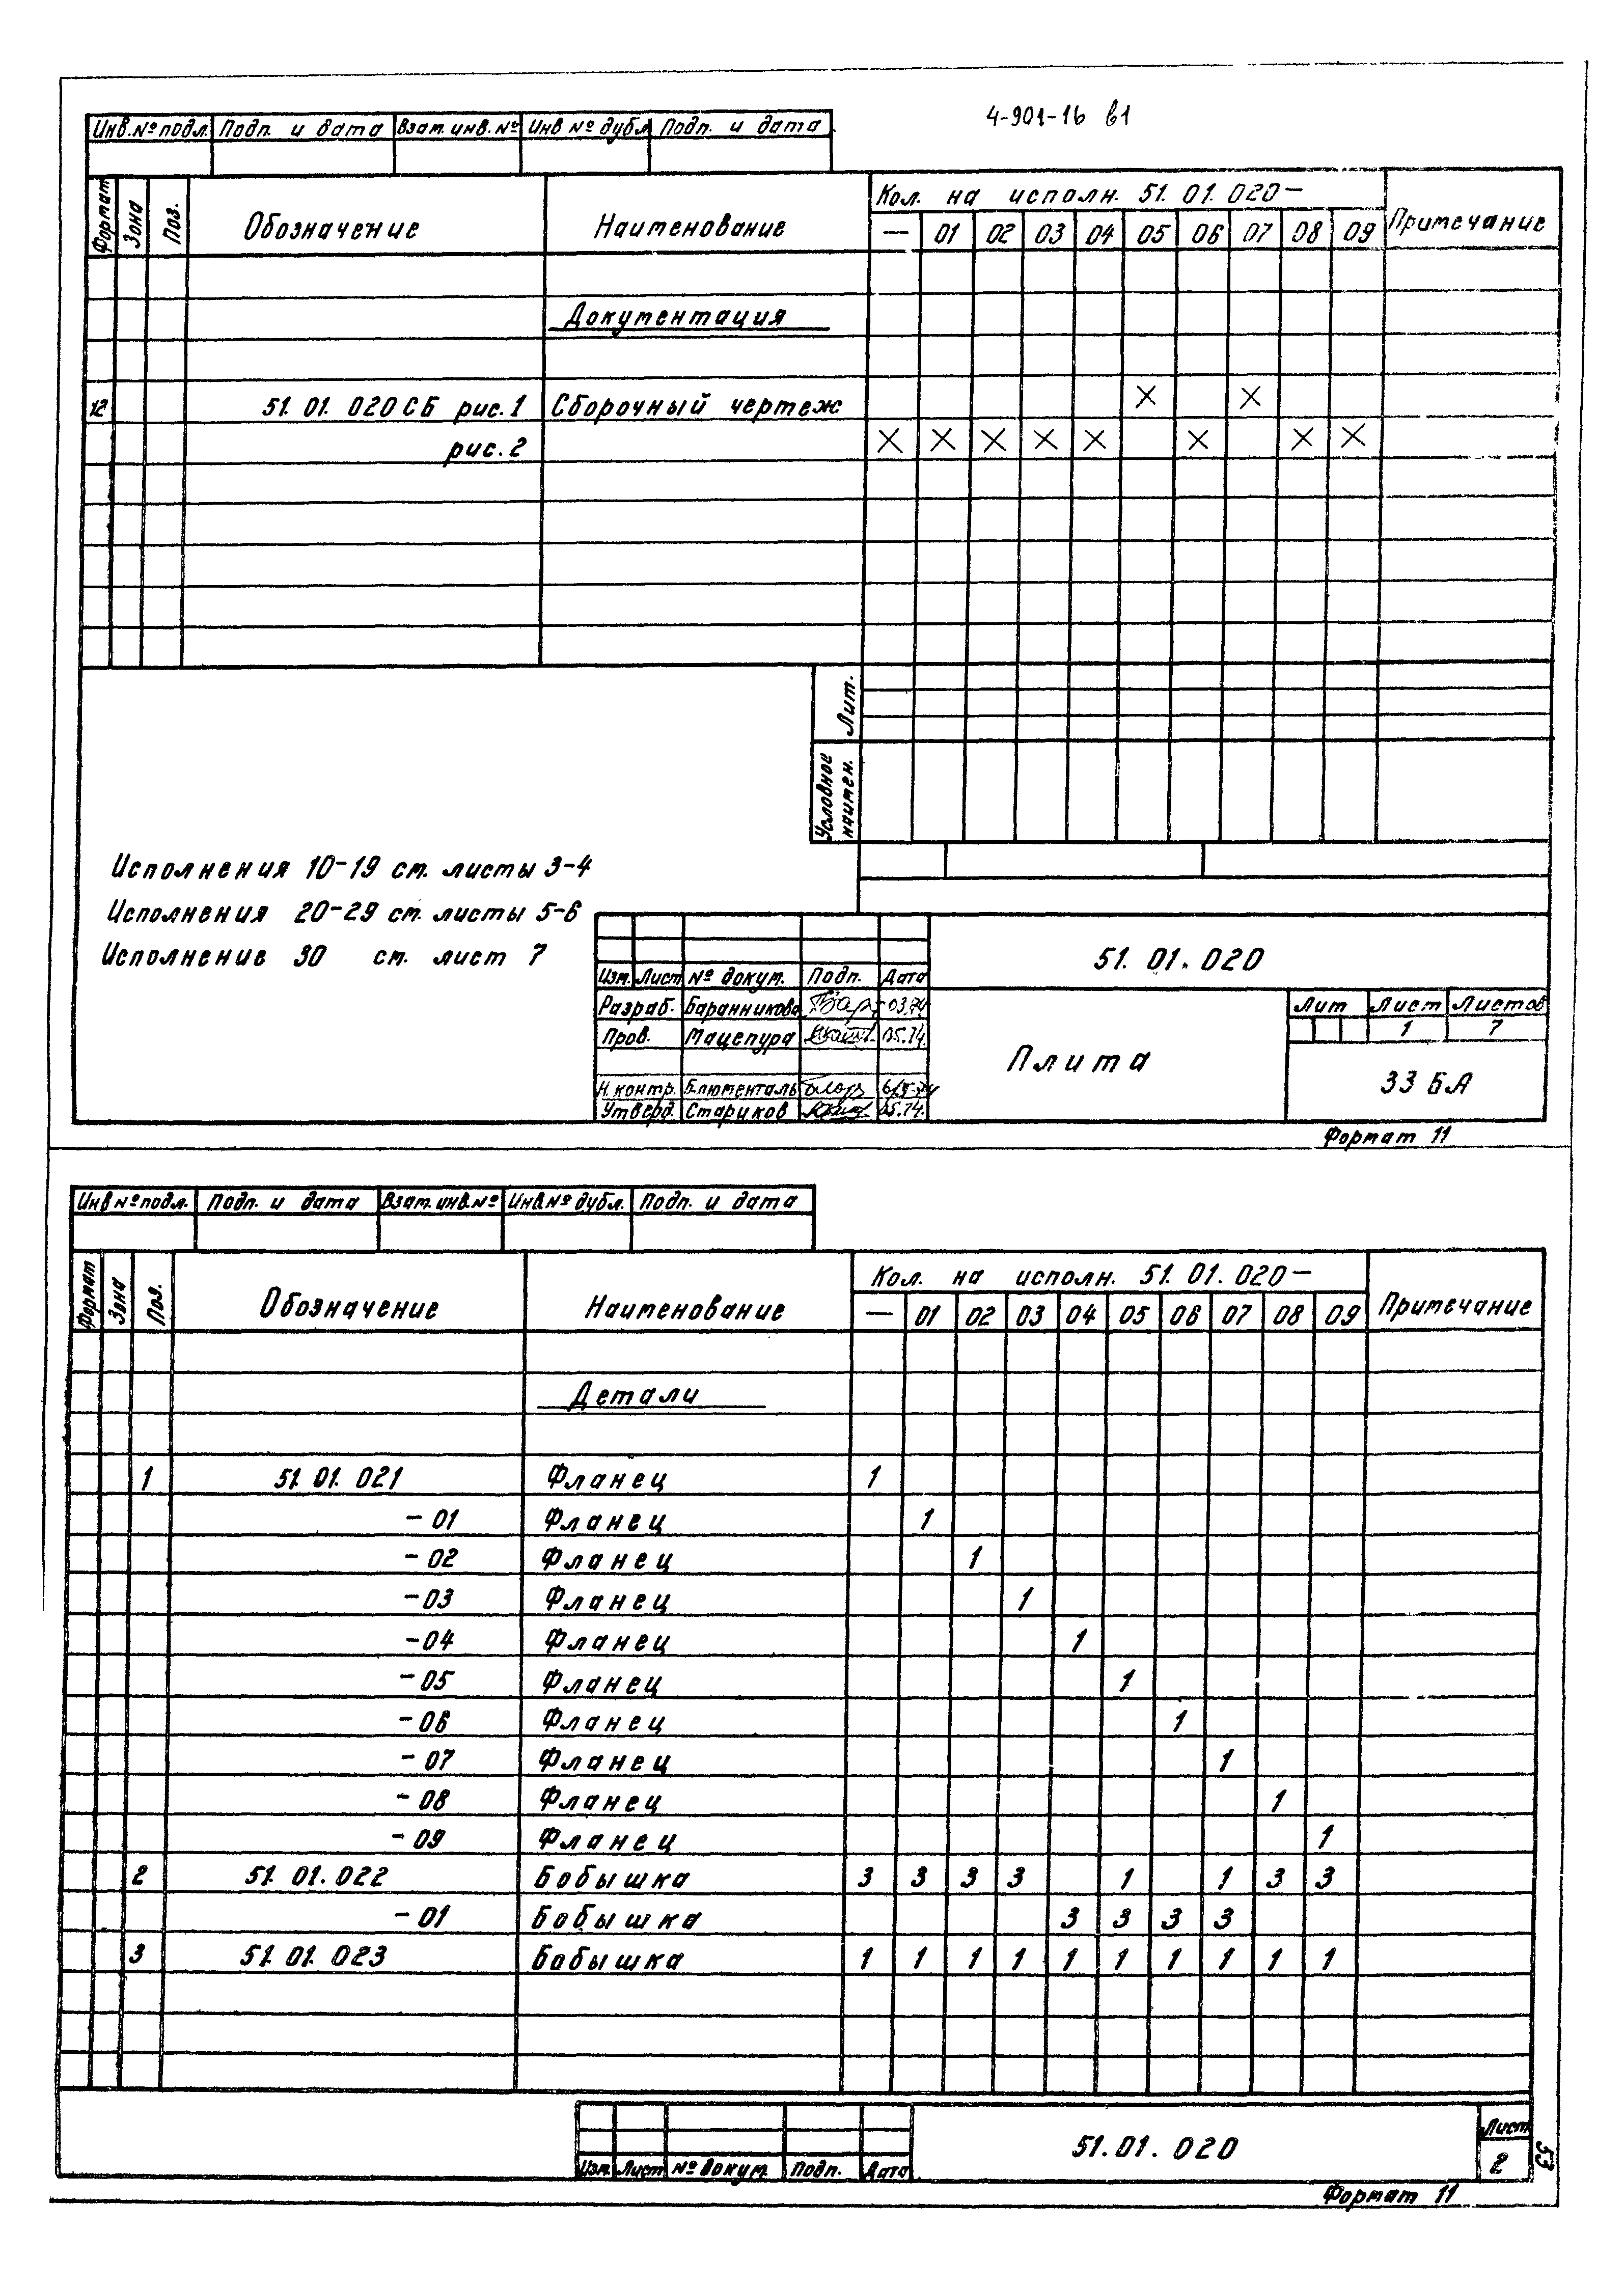 4-901-16 в1
Инв.№подл. Подп. и дата Взам.инв.№ Инв№дубл. Подп. и дата
Формат Зона Поз. Обозначение Наименование Кол. на исполн. 51.01.020— Примечание
— 01 02 03 04 05 06 07 08 09
Документация
12 51.01.020СБ рис.1 Сборочный чертеж X X
рис.2 X X X X X X X X
Лит.
Условное наимен.
Исполнения 10-19 см. листы 3-4
Исполнения 20-29 см. листы 5-6
Исполнение 30 см. лист 7
51.01.020
Изм. Лист № докум. Подп. Дата
Разраб. Баранникова 03.74
Пров. Мацепура 05.74.
Н.контр. Блюменталь
Утверд. Стариков 05.74.
Плита
Лит Лист Листов
1 7
ЗЗ БА
Формат 11
Инв№подл. Подп. и дата Взам.инв.№ Инв№дубл. Подп. и дата
Формат Зона Поз. Обозначение Наименование Кол. на исполн. 51.01.020— Примечание
— 01 02 03 04 05 06 07 08 09
Детали
1 51.01.021 Фланец 1
-01 Фланец 1
-02 Фланец 1
-03 Фланец 1
-04 Фланец 1
-05 Фланец 1
-06 Фланец 1
-07 Фланец 1
-08 Фланец 1
-09 Фланец 1
2 51.01.022 Бобышка 3 3 3 3 1 1 3 3
-01 Бобышка 3 3 3 3
3 51.01.023 Бобышка 1 1 1 1 1 1 1 1 1 1
Изм. Лист № докум. Подп. Дата
51.01.020
Лист
2
53
Формат 11